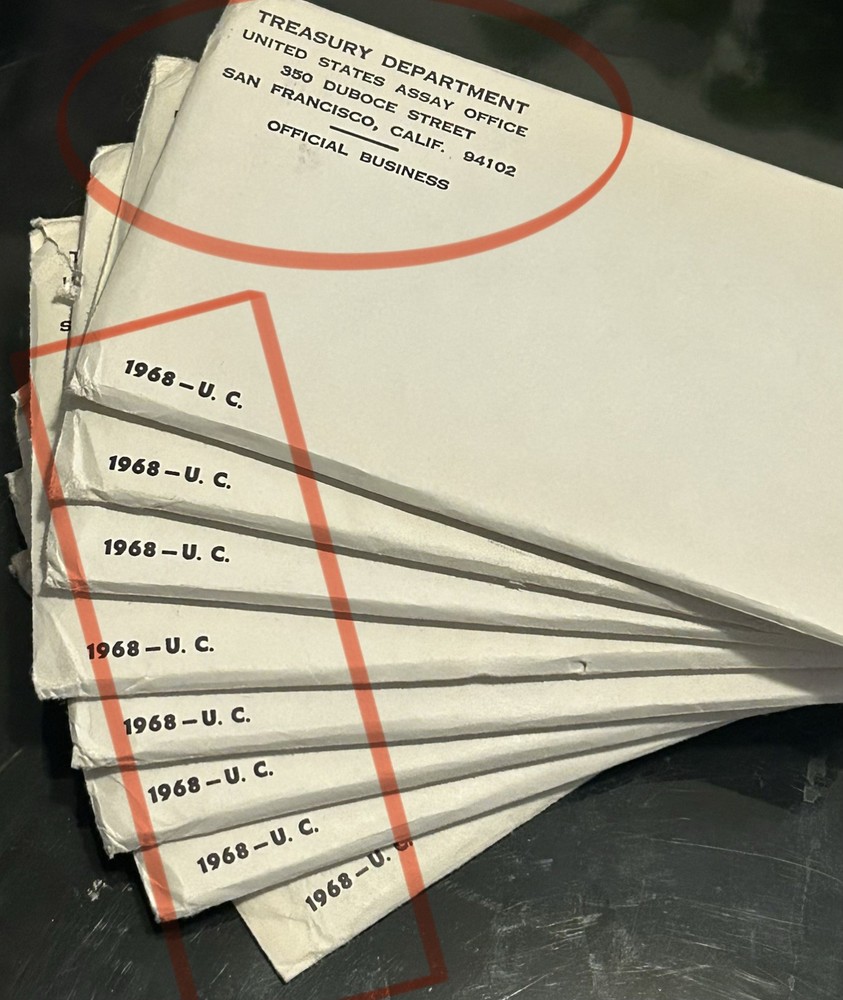 TREASURY DEPARTMENT
UNITED STATES ASSAY OFFICE
350 DUBOCE STREET
SAN FRANCISCO, CALIF. 94102
OFFICIAL BUSINESS
1968-U. C.
1968-U. C.
1968-U. C.
1968-U. C.
1968-U. C.
1968-U. C.
1968-U. C.
1968-U. C.